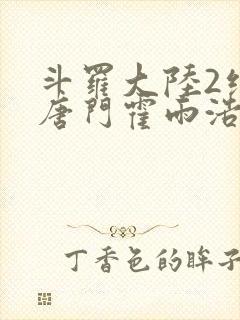 斗羅大陸2
唐門霍雨浩
丁香色的眸子